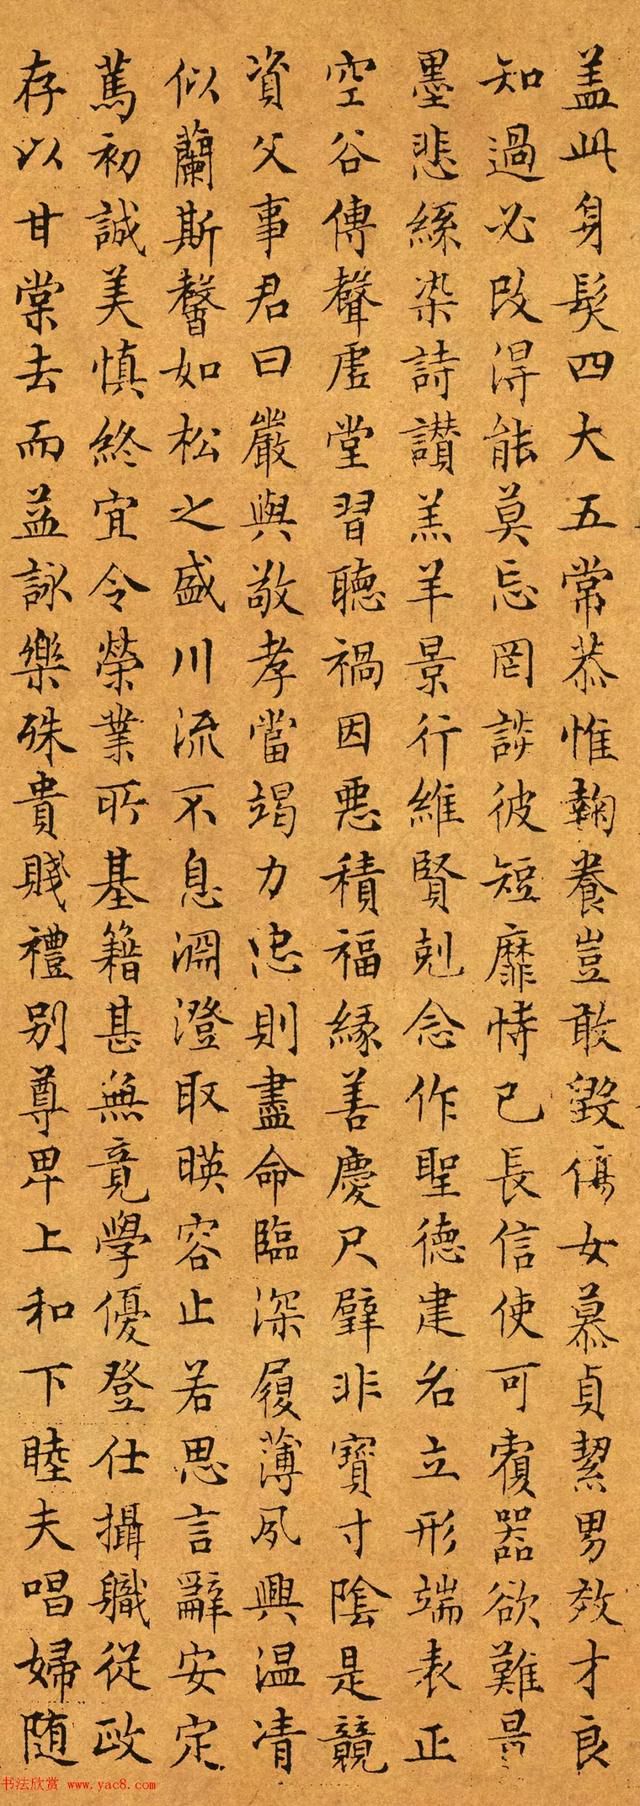 盖此身髮四大五常恭惟鞠養豈敢毀傷女慕貞絜男效才良
知過必改得能莫忘罔談彼短靡恃己長信使可覆器欲難量
墨悲絲染詩讃羔羊景行維賢剋念作聖德建名立形端表正
空谷傳聲虛堂習聽禍因惡積福緣善慶尺璧非寶寸陰是競
資父事君曰嚴與敬孝當竭力忠則盡命臨深履薄夙興温凊
似蘭斯馨如松之盛川流不息淵澄取暎容止若思言辭安定
篤初誠美慎終宜令榮業所基籍甚無竟學優登仕攝職從政
存以甘棠去而益詠樂殊貴賤禮別尊卑上和下睦夫唱婦随
书法欣赏 www.yac8.com